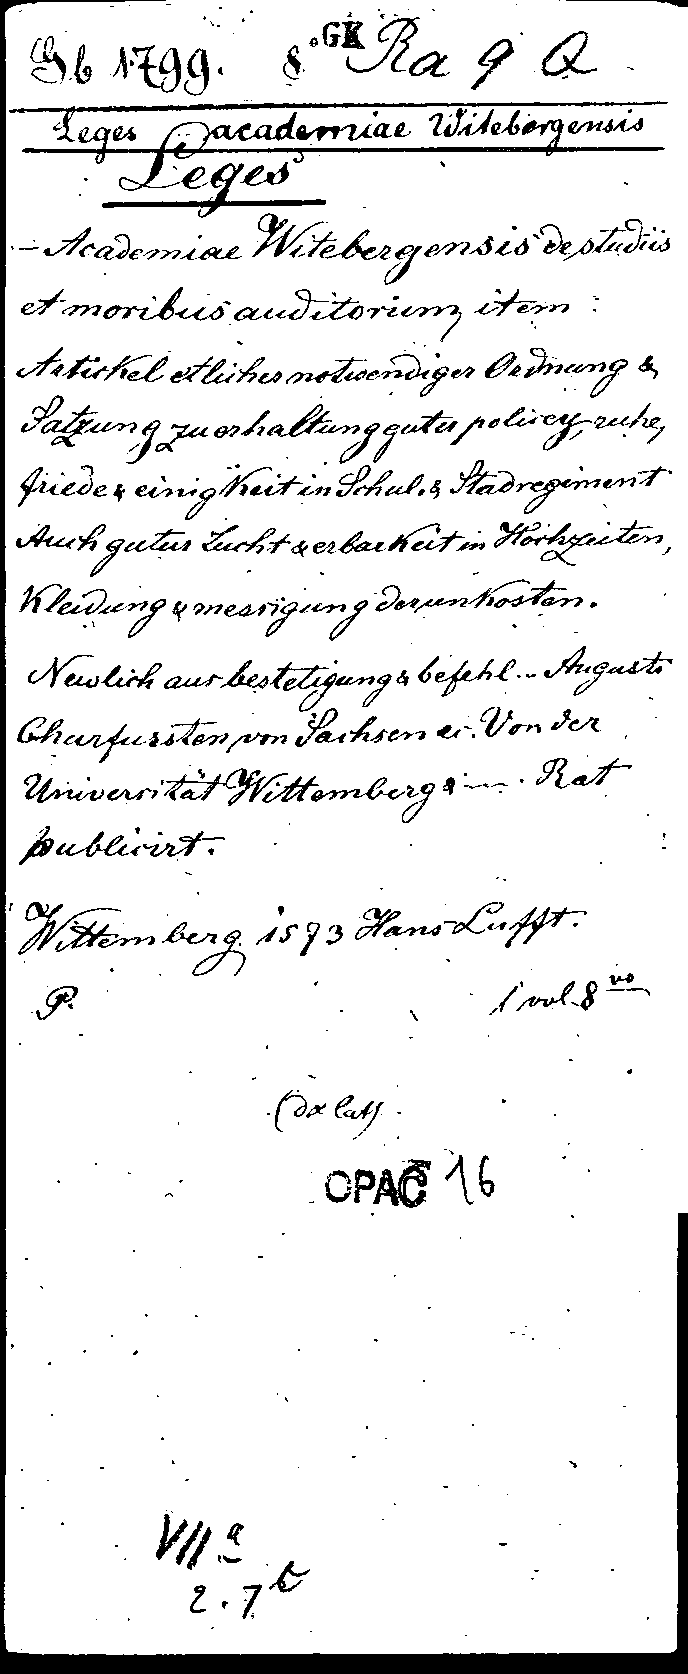 Gb 1799. 8° GK Ra 9 Q
Leges academiae Witebergensis
Leges
- Academiae Witebergensis de studiis
et moribus auditorium, item:
Artickel etlicher notwendiger Ordnung &
Satzung zu erhaltung guter policey, ruhe,
friede & einigkeit in Schul. & Stadregiment
Auch guter Zucht & erbarkeit in Hochzeiten,
Kleidung & messigung der unkosten.
Newlich aus bestetigung & befehl... Augusts
Churfussten von Sachsen ec. Von der
Universität Wittemberg & .... Rat
publicirt.
Wittemberg 1573 Hans Lufft.
P. 1 vol 8vo
OPAC 16
VII a
2. 7 b